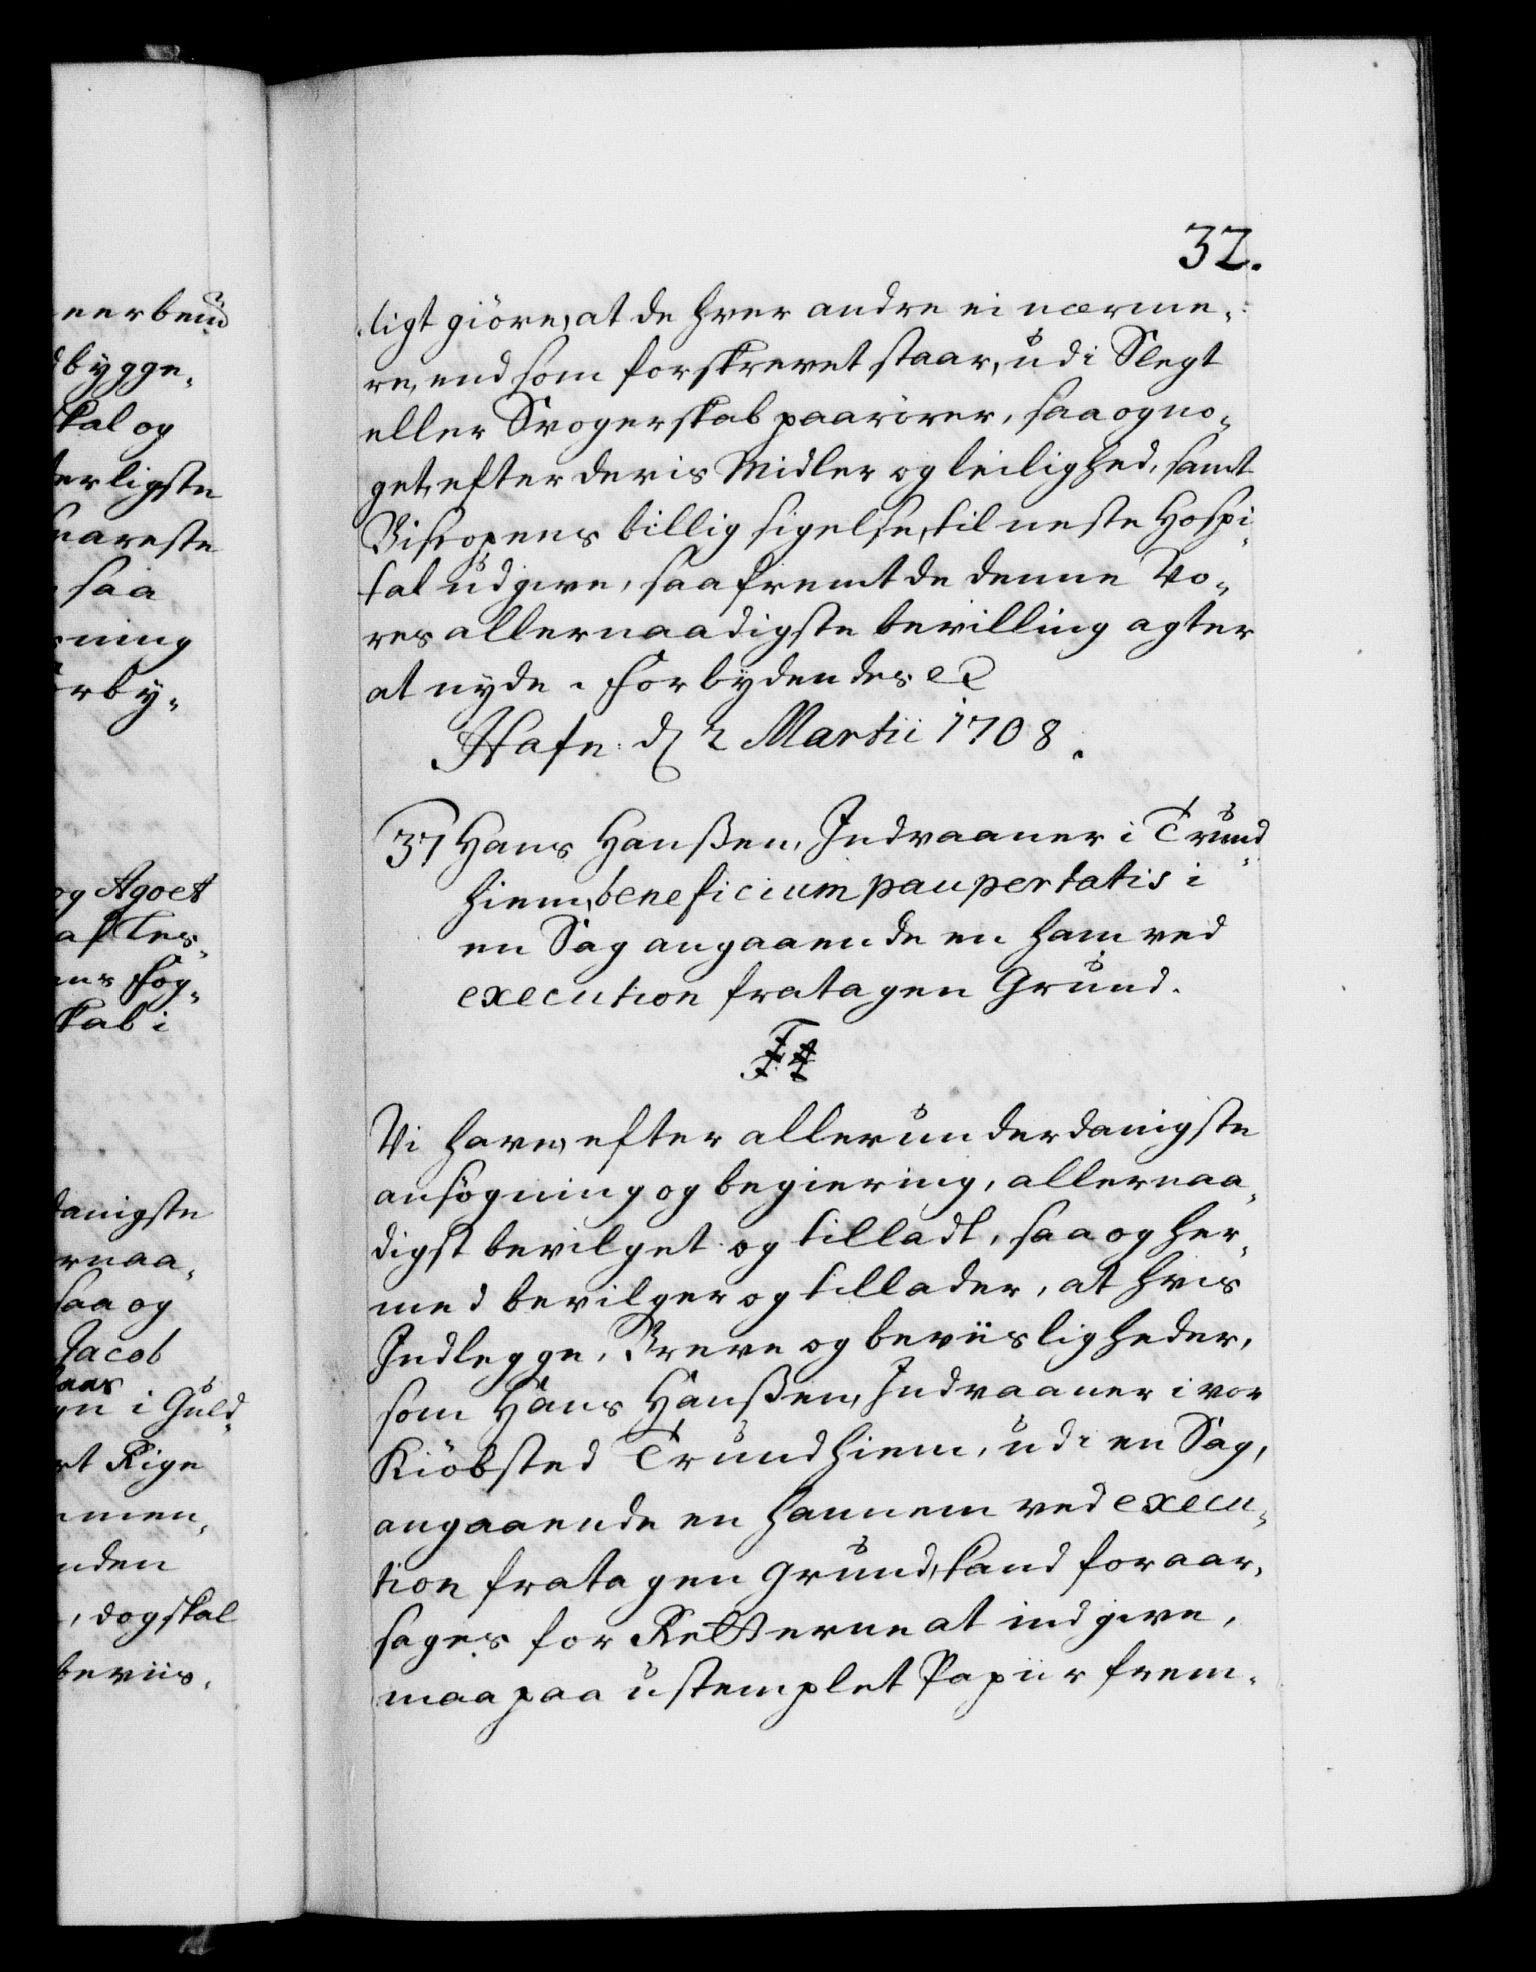 32.
ligt giöre, at de hver andre ei nærme¬
re, end som forskrevet staar, udi Slegt
eller Svogerskab paarörer, saa og no¬
get, efter deris Midler og leilighed, samt
Biscopens billig sigelse, til neste Hospi¬
tal udgive, saafremt de denne Vo¬
res allernaadigste bevilling agter
at nyde. Forbydendes &
Hafn: d 2 Martii 1708.
37 Hans Hanßen, Indvaaner i Trund¬
hiem, beneficium paupertatis i
en Sag angaaende en ham ved
execution fratagen Grund.
F4
Vi have, efter allerunderdanigste
ansögning og begiering, allernaa¬
digst bevilget og tilladt, saa og her¬
med bevilger og tillader, at hvis
Indlegge, Breve og beviisligheder,
som Hans Hanßen, Indvaaner i vor
Kiöbsted Trundhiem, udi en Sag,
angaaende en hannem ved execu¬
tion fratagen grund, kand foraar¬
sages for Retterne at indgive,
maa paa ustemplet Papiir frem¬
eerbeud
bygge¬
skal og
erligste
nareste
saa
ning
rby¬
og Agoet
af Tes¬
ens Fog¬
skab i
danigste
rnaa¬
saa og
Jacob
aas
en i Guld¬
rt Rige
men¬
nden
, dog skal
beviis¬